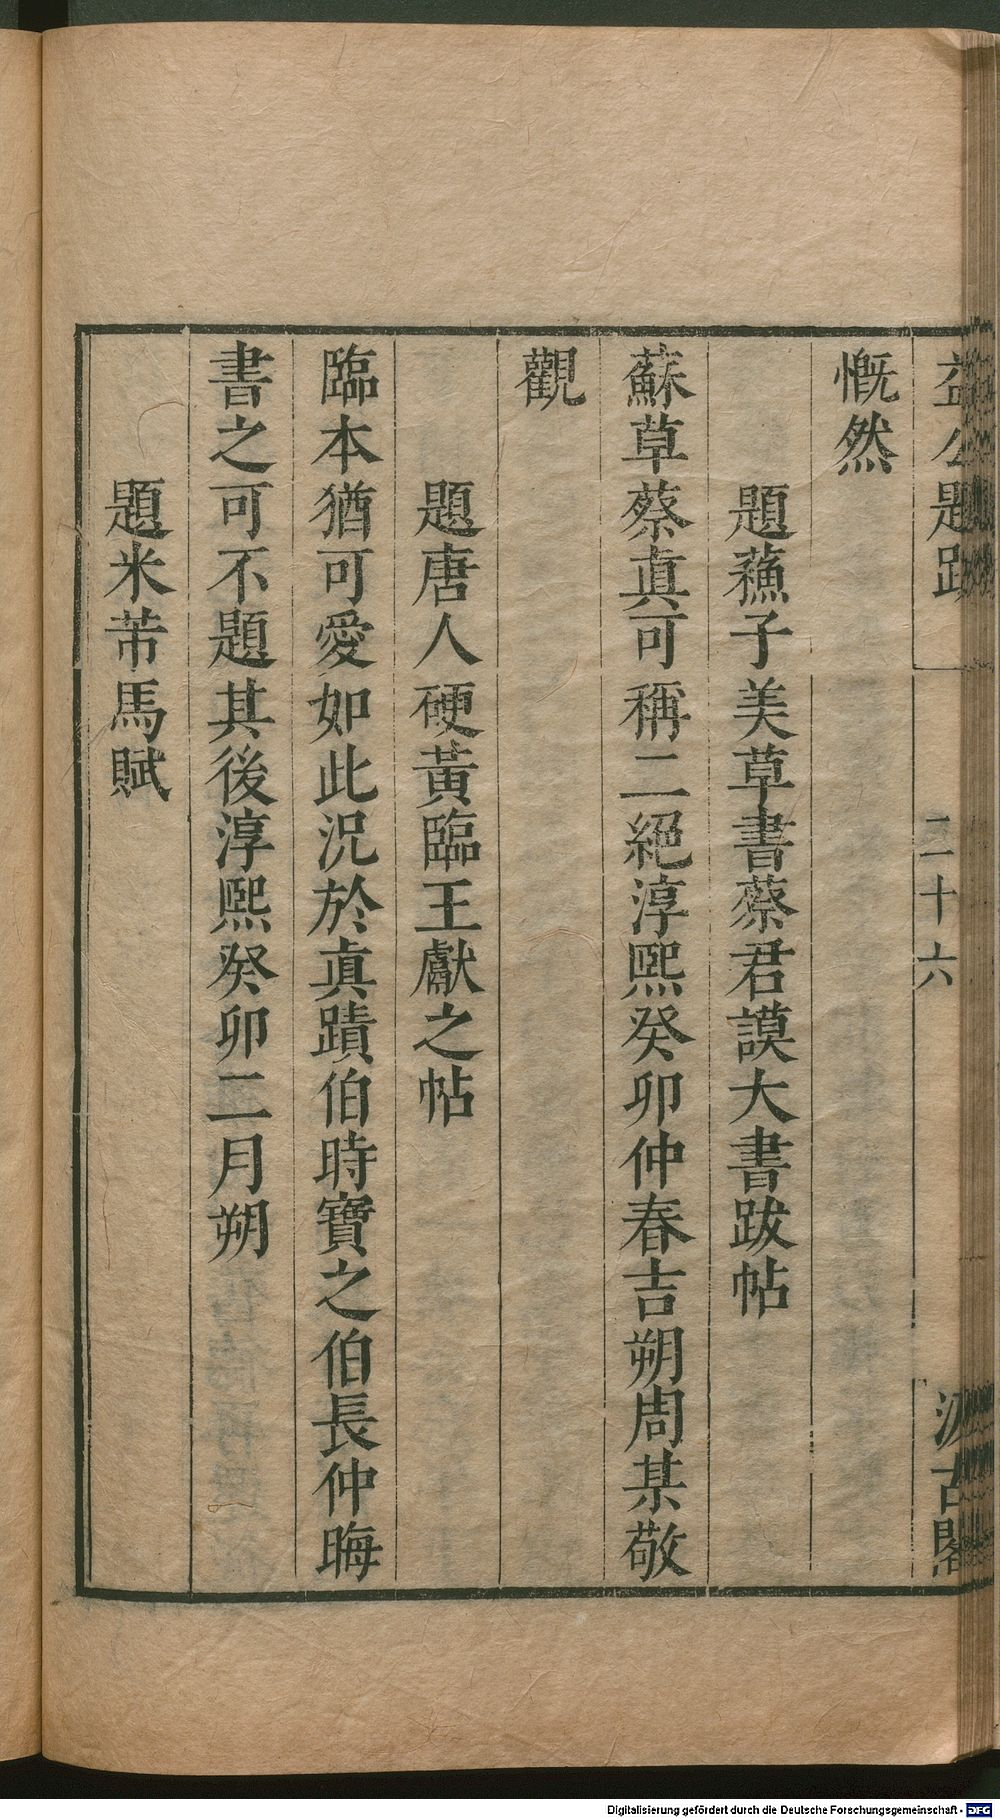 益公題跋 二十六 汲古閣
慨然
題蘓子美草書蔡君謨大書跋帖
蘇草蔡真可稱二絕淳熙癸卯仲春吉朔周某敬
觀
題唐人硬黃臨王獻之帖
臨本猶可愛如此況於真蹟伯時寶之伯長仲晦
書之可不題其後淳熙癸卯二月朔
題米芾馬賦
Digitalisierung gefördert durch die Deutsche Forschungsgemeinschaft - DFG